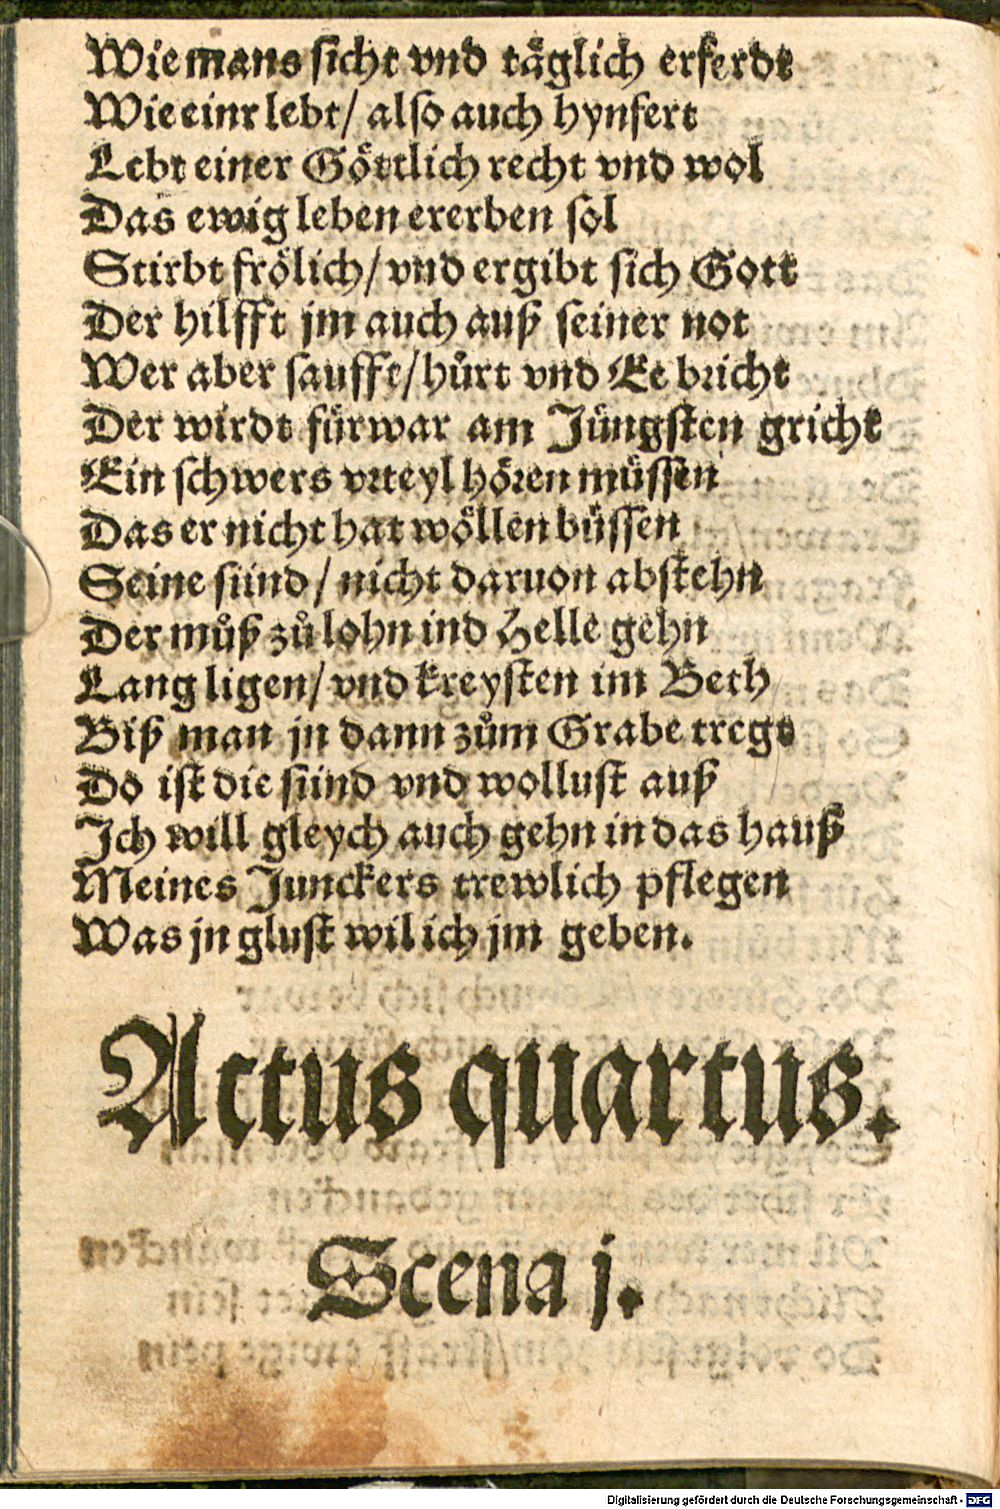 Wie mans sicht vnd täglich erferdt
Wie einr lebt/ also auch hynfert
Lebt einer Göttlich recht vnd wol
Das ewig leben ererben sol
Stirbt frölich/ vnd ergibt sich Gott
Der hilfft jm auch auß seiner not
Wer aber saufft/ hůrt vnd Ee bricht
Der wirdt fürwar am Jüngsten gricht
Ein schwers vrteyl hören müssen
Das er nicht hat wöllen büssen
Seine sünd/ nicht daruon abstehn
Der můß zů lohn ind Helle gehn
Lang ligen/ vnd kreysten im Beth
Biß man jn dann zům Grabe tregt
Do ist die sünd vnd wollust auß
Ich will gleych auch gehn in das hauß
Meines Junckers trewlich pflegen
Was jn glust wil ich jm geben.
Actus quartus.
Scena j.
Digitalisierung gefördert durch die Deutsche Forschungsgemeinschaft - DFG